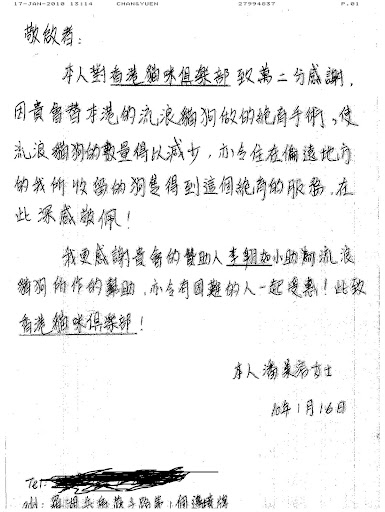 17-JAN-2010 13:14 CHANGYUEN 27994837 P.01
敬啟者：
本人對香港貓咪俱樂部致萬二分感謝，
因貴會替本港的流浪貓狗做的絕育手術，使
流浪貓狗的數量得以減少，亦令住在偏遠地方
的我所收留的狗隻得到這個絕育的服務，在
此深感敬佩！
我更感謝貴會的贊助人李翱如小助流浪
貓狗所作的幫助，亦令有困難的人一起受惠！此致
香港貓咪俱樂部！
本人潘 女士
10年1月16日
Tel: